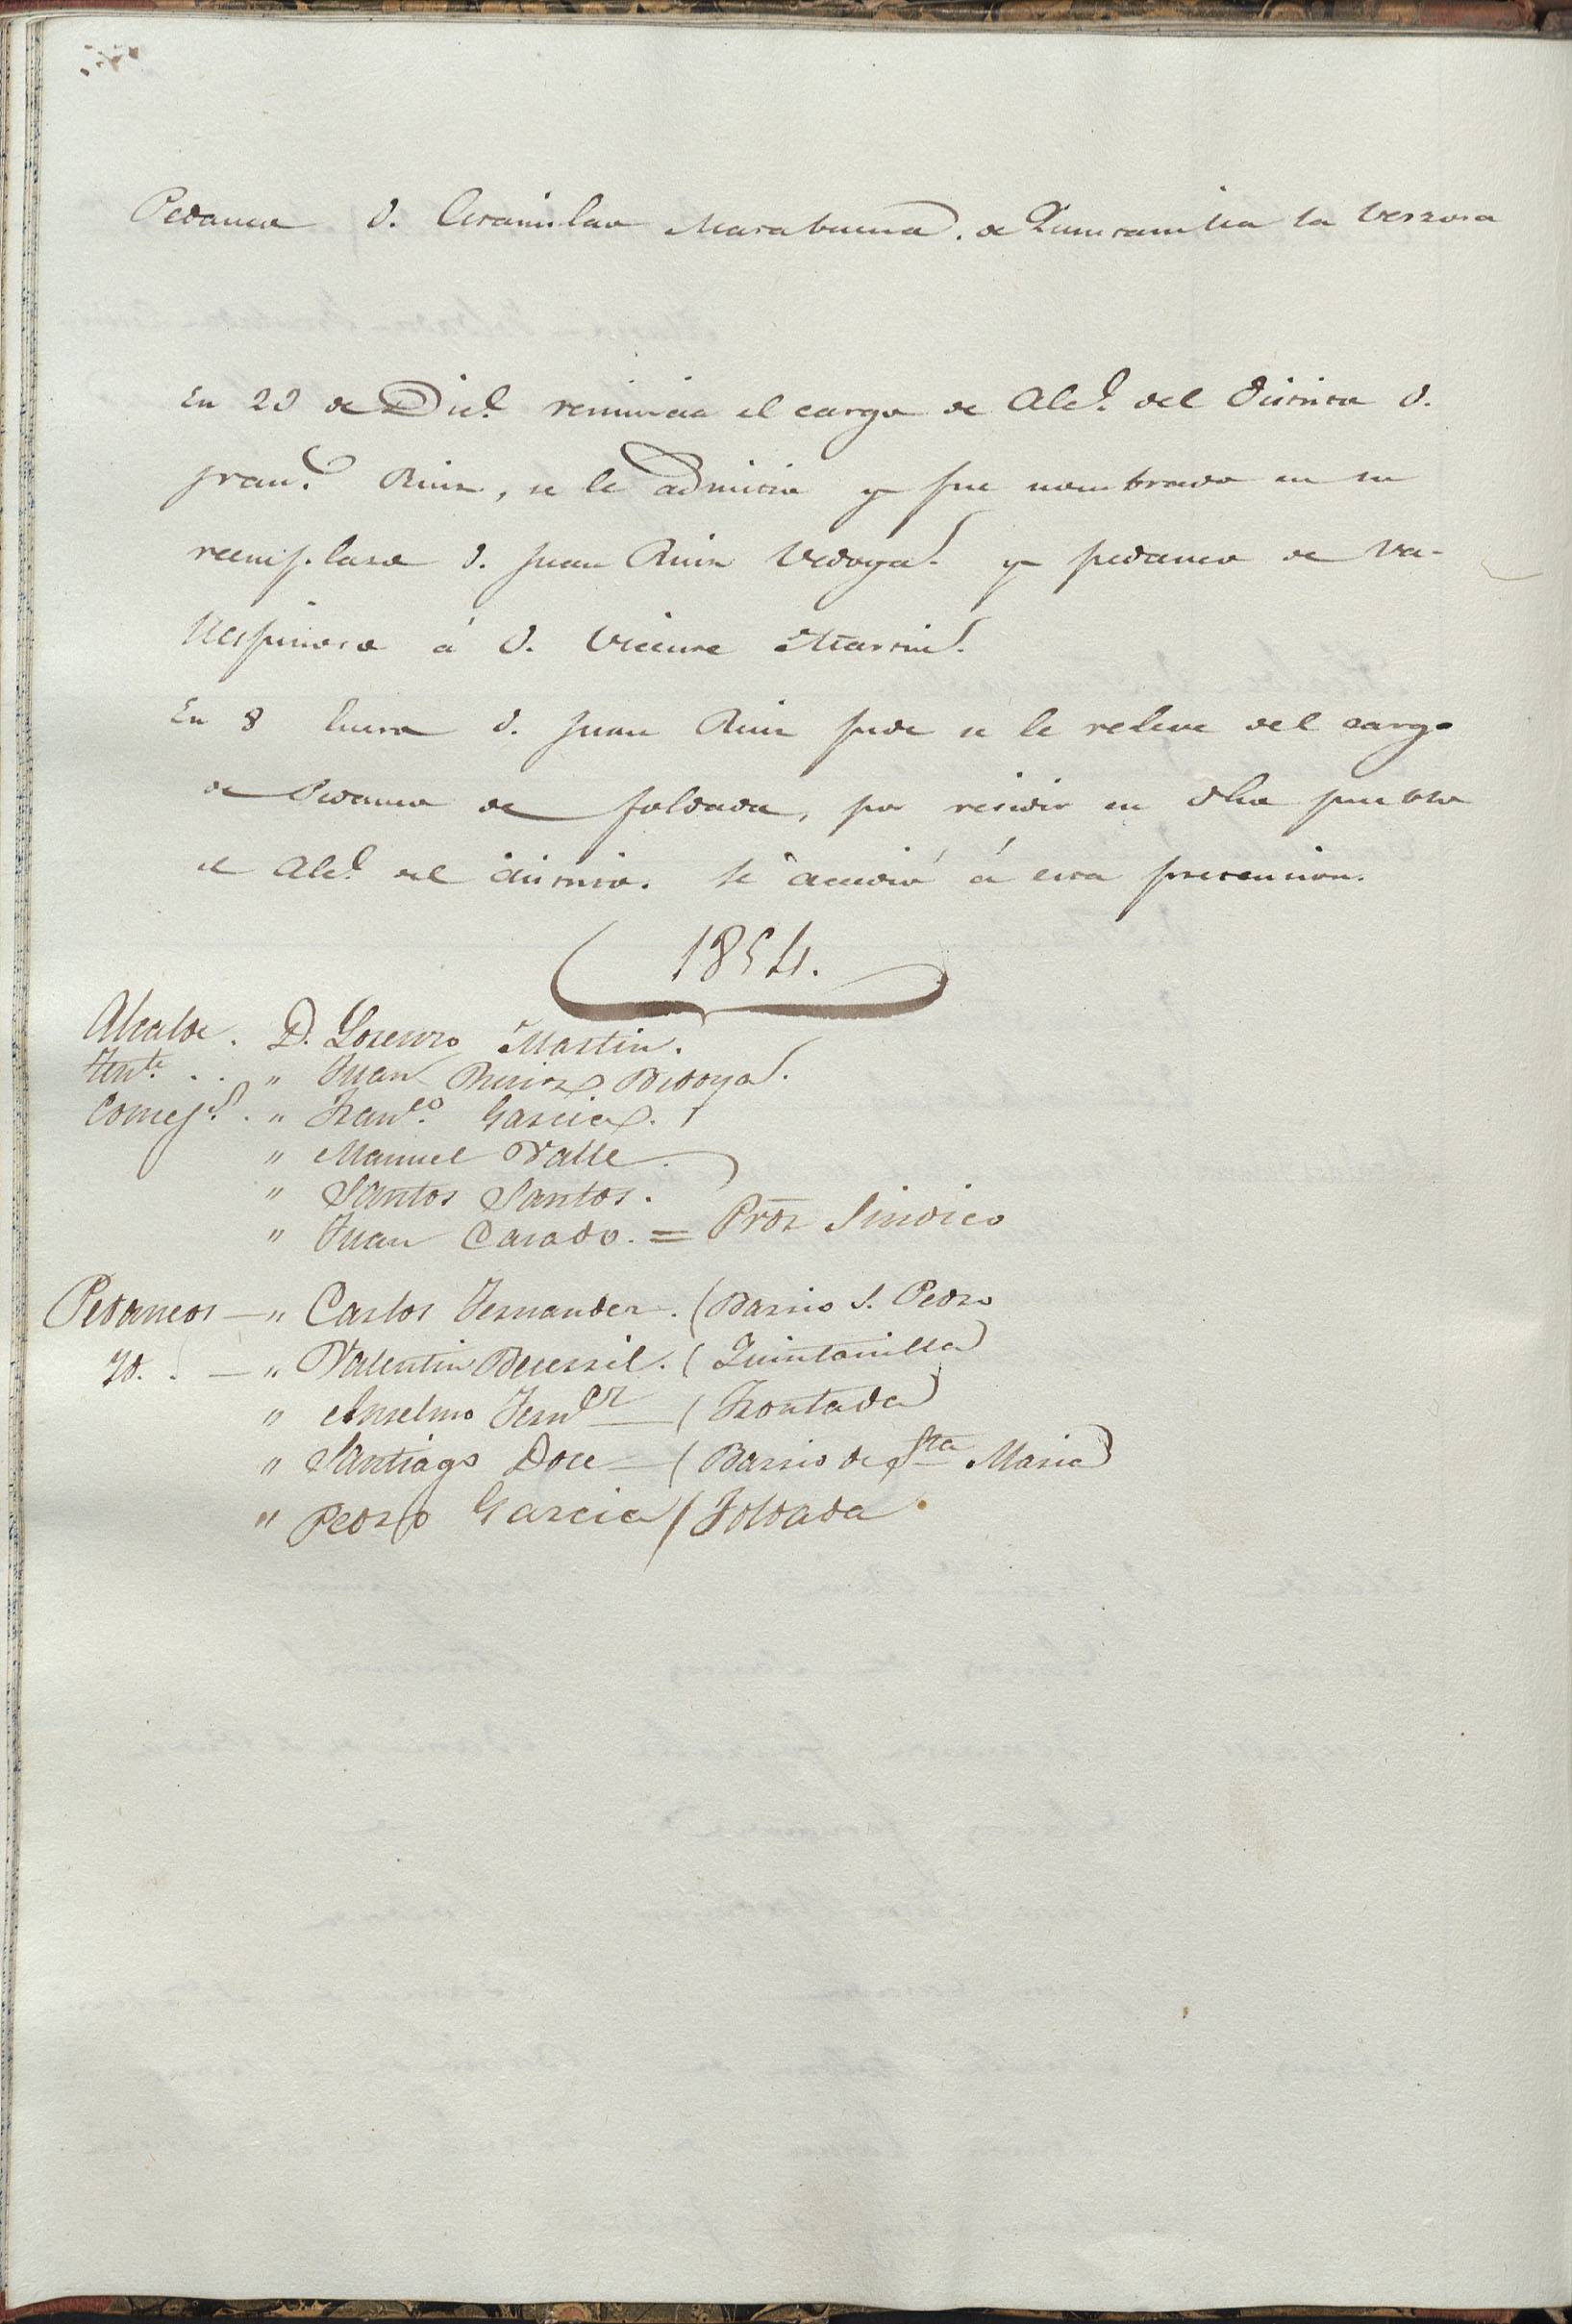 Pedaneo D. Estanislao Marabuena. de Quintanilla la Berzosa
En 29 de Dic.e renuncia el cargo de Alc.e del distrito D.
Fran.co Ruiz, se le admitio y fue nombrado en su
reemplazo D. Juan Ruiz Vedoya. y pedaneo de Va-
llespinoso á D. Vicente Martin.
En 8 Enero D. Juan Ruiz pide se le releve del cargo
de Pedaneo de Foldada, por residir en dho pueblo
el Alc.e del distrito. Se accedió á esta pretension.
1854.
Alcalde . D. Lorenzo Martin.
Tente. . . " Juan Ruiz Bedoya.
Concejs. . " Franco. Garcia.
" Manuel Valle.
" Santos Santos.
" Juan Casado. = Pror Sindico
Pedaneos — " Carlos Fernandez. (Barrio S. Pedro
Id. . — " Valentin Becerril. (Quintanilla)
" Anselmo Fernez — (Frontada)
" Santiago Doce — (Barrio de Sta Maria)
" Pedro Garcia (Foldada